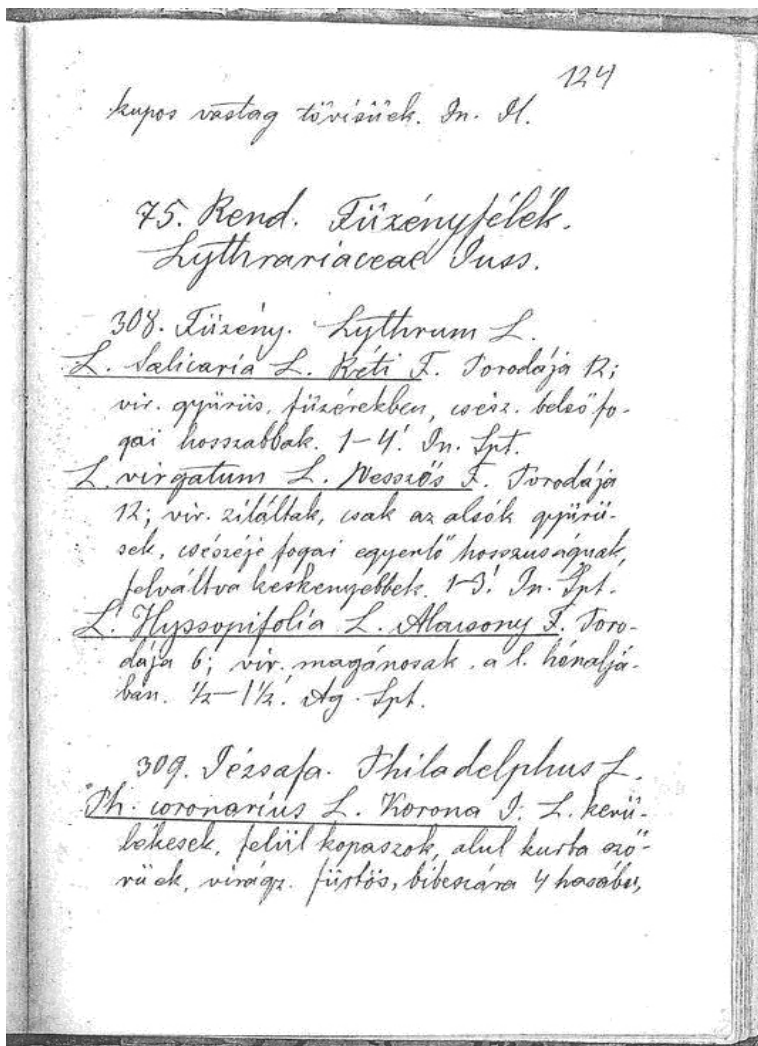 124
kupos vastag tövisüek. In. Jl.
75. Rend. Füzényfélék.
Lythrariaceae Juss.
308. Füzény. Lythrum L.
L. Salicaria L. Réti F. Porodája 12;
vir. gyürüs, füzérekben, csész. belső fo-
gai hosszabbak. 1-4! In. Spt.
L. virgatum L. Vesszős F. Porodája
12; vir. ziláltak, csak az alsók gyürü-
sek, csészéje fogai egyenlő hosszuságuak,
felváltva keskenyebbek. 1-3! In. Spt.
L. Hyssopifolia L. Alacsony F. Poro-
dája 6; vir. magánosak a l. hónaljá-
ban. ½-1½! Ag. Spt.
309. Jézsafa. Philadelphus L.
Ph. coronarius L. Korona J. L. kerü-
lékesek, felül kopaszok, alul kurta ször-
rüek, virágz. fürtös, bibeszára 4 hasábu,